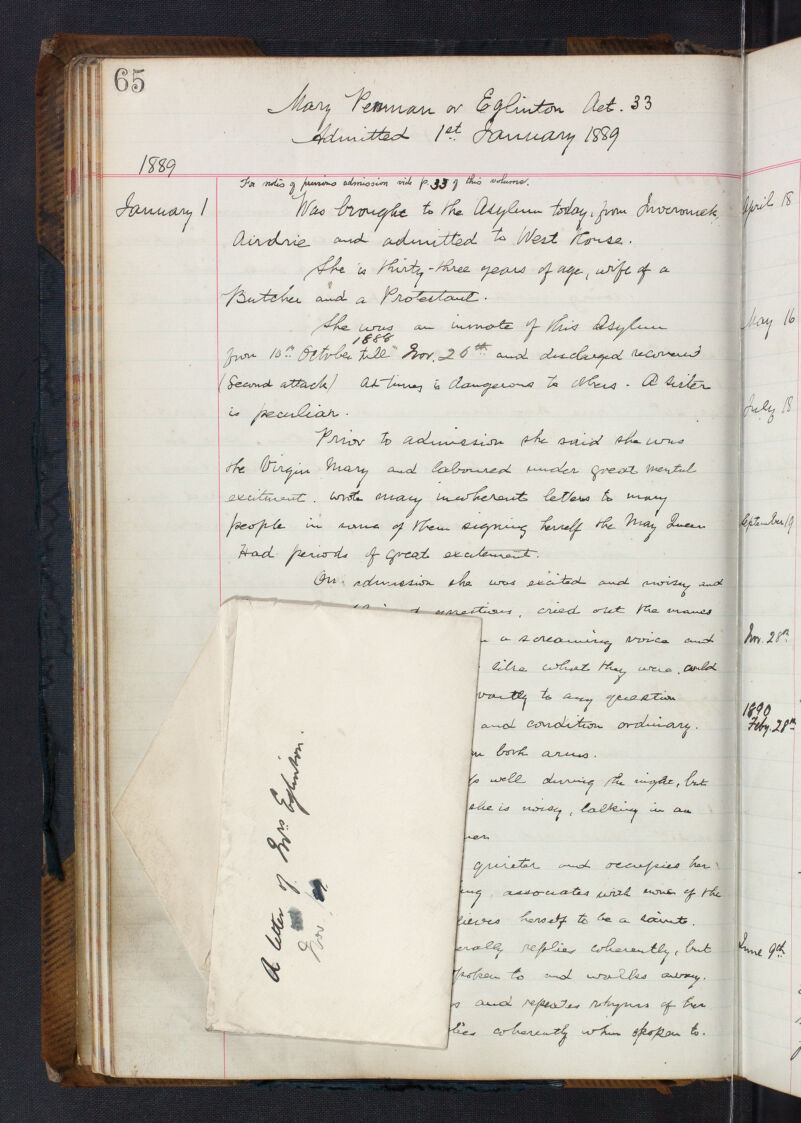 65
Mary Penman or Eglinton Aet. 33
Admitted 1st January 1889
1889
For notes of previous admission vide p. 33 of this volume.
January 1
Was brought to the Asylum today, from
Airdrie and admitted to West House.
She is thirty-three years of age, wife of a
Butcher and a Protestant.
She was an inmate of this Asylum
from 10th October 1888 till Nov. 26th and discharged recovered
(Second attack) At times is dangerous to others. A sister
is peculiar.
Prior to admission she said she was
the Virgin Mary and laboured under great mental
excitement. wrote many incoherent letters to many
people in some of them signing herself the May Queen
Had periods of great excitement.
On admission she was excited and noisy and
questions, cried out the names
in a screaming voice and
like what they were. could
to any question
and condition ordinary.
on both arms.
well during the night, but
she is noisy, talking in an
quieter and occupies her
associates with some of the
herself to be a saint.
replies coherently, but
spoken to and walks away.
and repeates rhymes of her
coherently when spoken to.
A letter of Mrs Eglinton.
Nov.
April 18
May 16
July 18
September 19
Nov. 28th
1890
Feby. 28th
June 9th